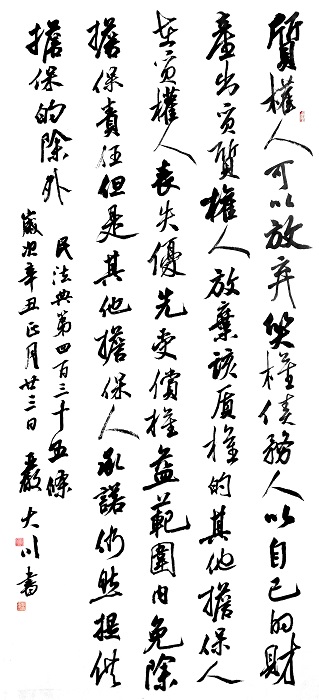 質權人可以放弃质權债務人以自己的財
產出质質權人放棄該质權的其他擔保人
在质權人喪失優先受償權益範圍内免除
擔保責任但是其他擔保人承諾仍然提供
擔保的除外
民法典第四百三十五條
歲次辛丑正月廿三日 嚴大川書